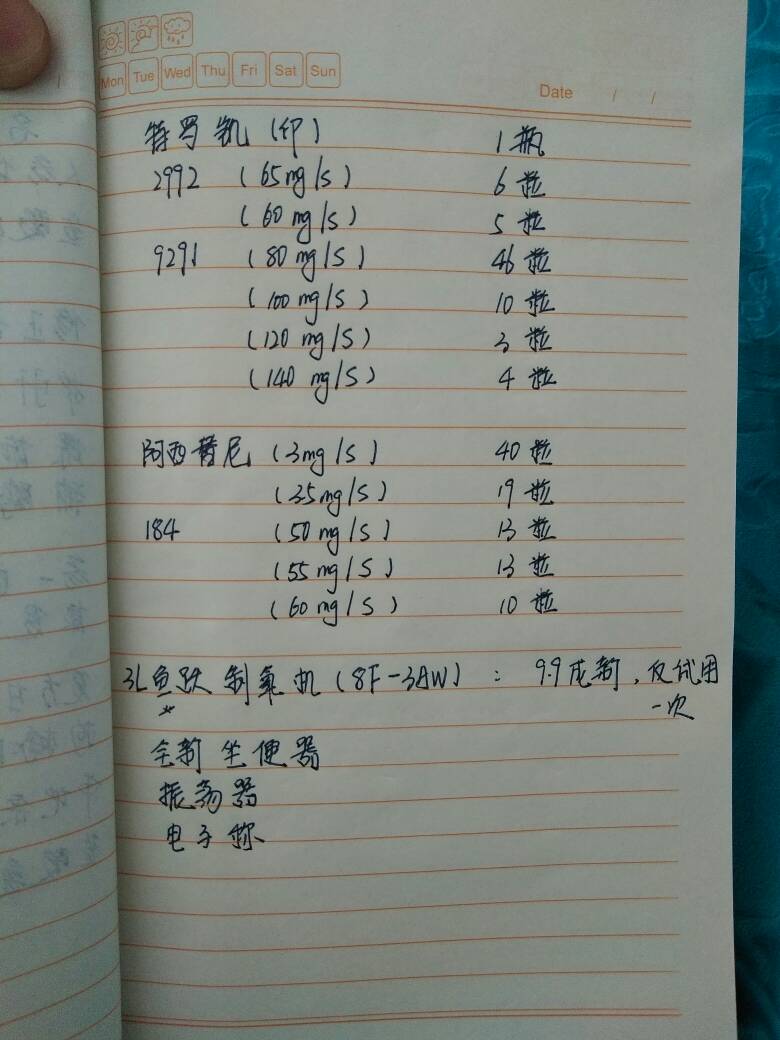 Mon Tue Wed Thu Fri Sat Sun
Date / /
特罗凯（印） 1瓶
2992 (65mg/S) 6粒
(60mg/S) 5粒
9291 (80mg/S) 46粒
(100mg/S) 10粒
(120mg/S) 3粒
(140mg/S) 4粒
阿西替尼 (3mg/S) 40粒
(35mg/S) 19粒
184 (50mg/S) 13粒
(55mg/S) 13粒
(60mg/S) 10粒
3L鱼跃制氧机(8F-3AW)： 9.9成新，仅试用
一次
全新坐便器
振荡器
电子称